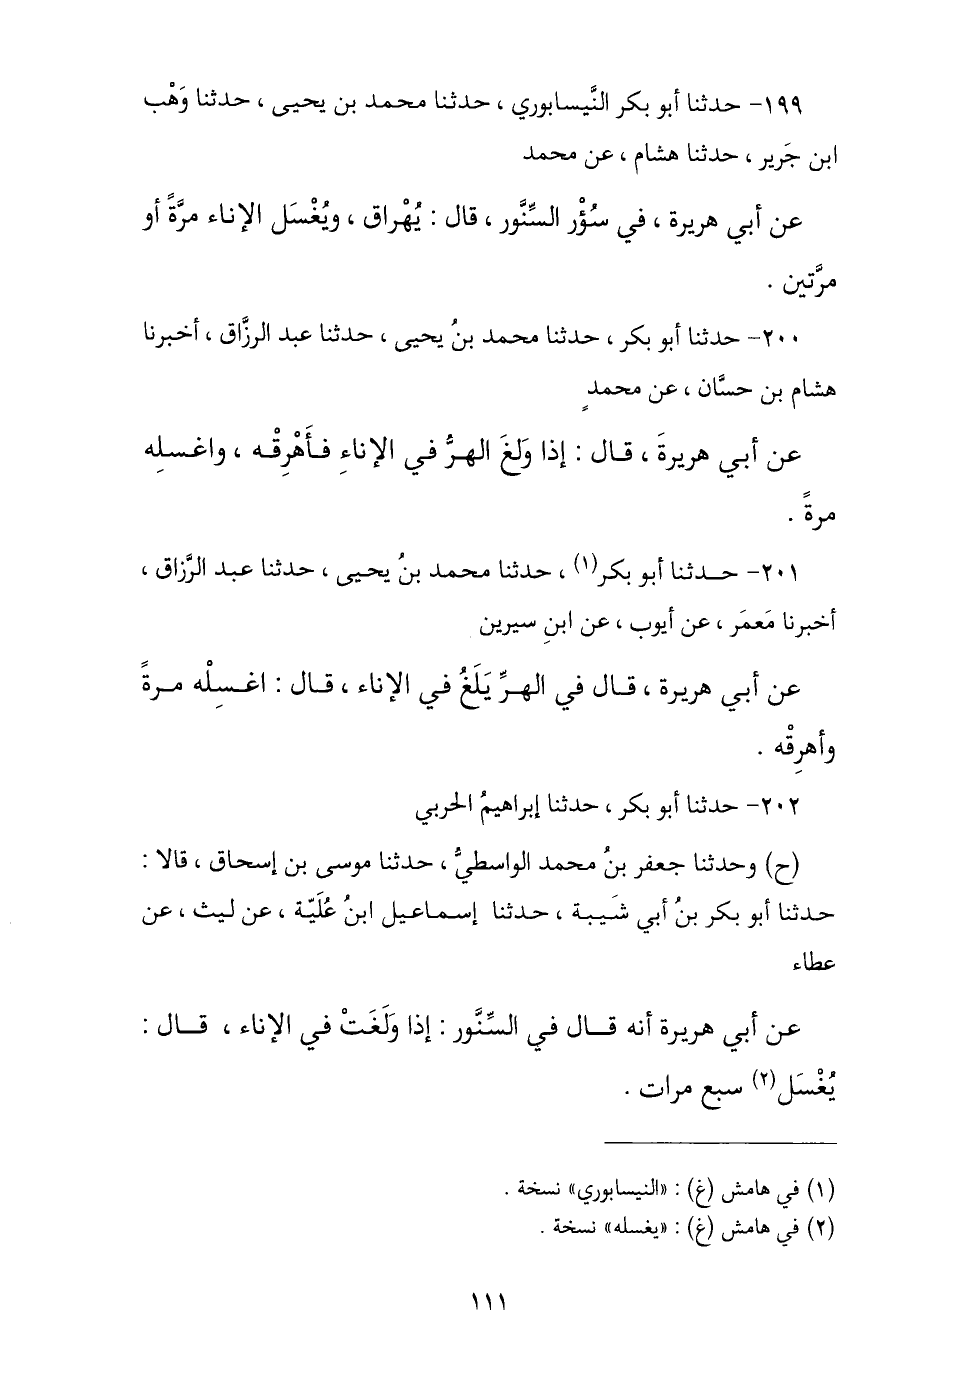 ١٩٩- حدثنا أبو بكر النَّيسابوري ، حدثنا محمد بن يحيى ، حدثنا وَهْب
ابن جَرير ، حدثنا هشام ، عن محمد
عن أبي هريرة ، في سُؤْر السِّنَّور ، قال : يُهْراق ، ويُغْسَل الإناء مرَّةً أو
مرَّتين .
٢٠٠- حدثنا أبو بكر ، حدثنا محمد بنُ يحيى ، حدثنا عبد الرزَّاق ، أخبرنا
هشام بن حسَّان ، عن محمدٍ
عن أبي هريرةَ ، قال : إذا وَلَغَ الهرُّ في الإناءِ فأَهْرِقْه ، واغسلِه
مرةً .
٢٠١- حدثنا أبو بكر(١) ، حدثنا محمد بنُ يحيى ، حدثنا عبد الرَّزاق ،
أخبرنا مَعمَر ، عن أيوب ، عن ابنِ سيرين
عن أبي هريرة ، قال في الهرِّ يَلَغُ في الإناء ، قال : اغسِلْه مرةً
وأهرِقْه .
٢٠٢- حدثنا أبو بكر ، حدثنا إبراهيمُ الحربي
(ح) وحدثنا جعفر بنُ محمد الواسطيُّ ، حدثنا موسى بن إسحاق ، قالا :
حدثنا أبو بكر بنُ أبي شَيبة ، حدثنا إسماعيل ابنُ عُلَيّة ، عن ليث ، عن
عطاء
عن أبي هريرة أنه قال في السِّنَّور : إذا وَلَغَتْ في الإناء ، قال :
يُغْسَل(٢) سبع مرات .
(١) في هامش (غ) : «النيسابوري» نسخة .
(٢) في هامش (غ) : «يغسله» نسخة .
١١١